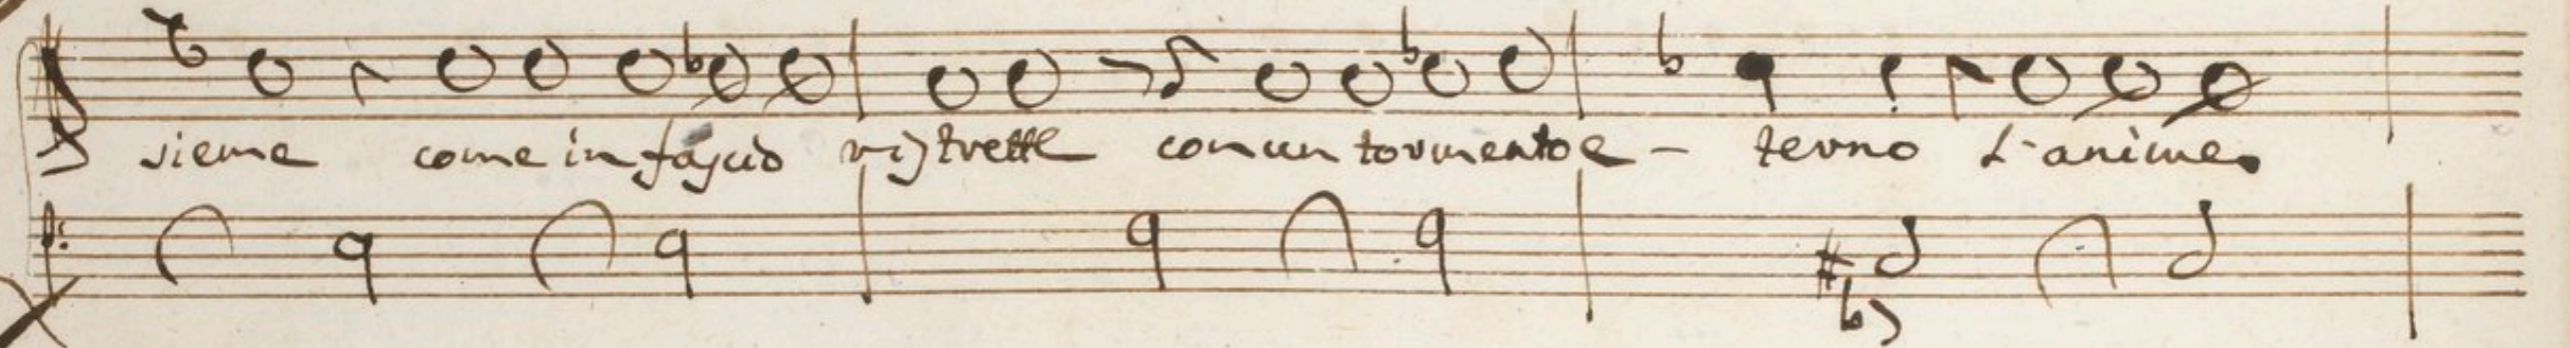 sieme come in fascio ristrette con un tormento e - terno L'anime
b5